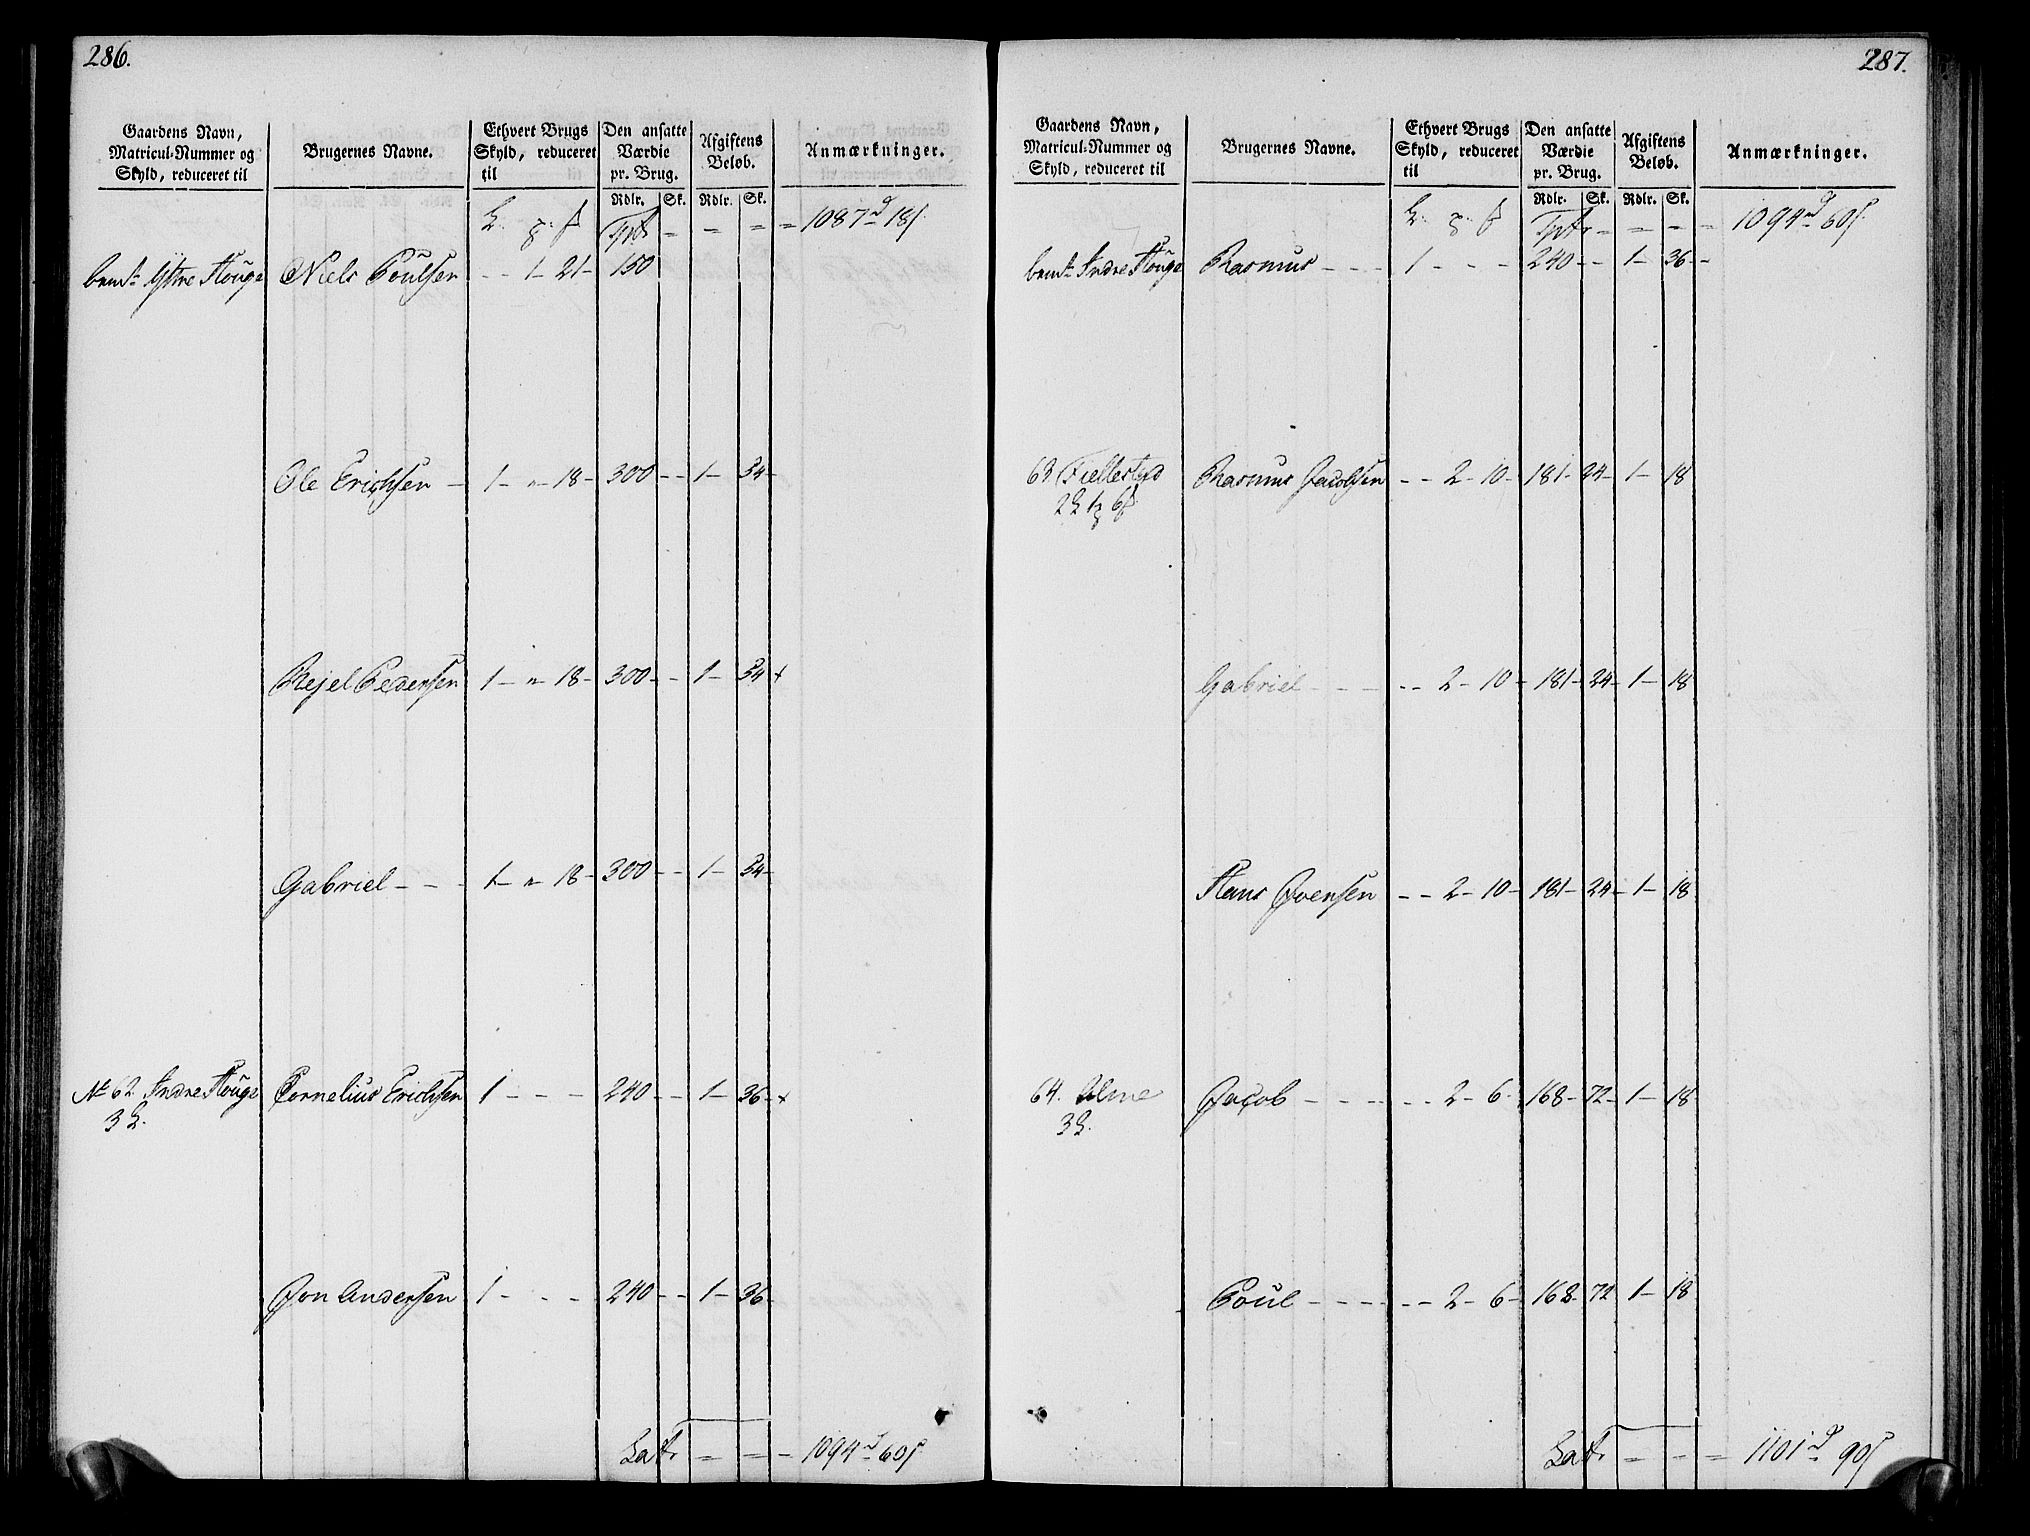 286.
Gaardens Navn, Matricul-Nummer og Skyld, reduceret til
Brugernes Navne.
Ethvert Brugs Skyld, reduceret til
Den ansatte Værdie pr. Brug.
Afgiftens Beløb.
Anmærkninger.
Rdlr. Sk. Rdlr. Sk.
Tprt = = = = 1087 d 18 s
bemte Yttre Houge Niels Poulsen - - 1 - 21 - 150
Ole Erichsen - 1 - " - 18 - 300 - - 1 - 54 -
Rejel Pedersen 1 - " - 18 - 300 - - 1 - 54 +
Gabriel - - - 1 - " - 18 - 300 - - 1 - 54 -
No 62 Indre Houge Cornelius Erichsen 1 - - - 240 - - 1 - 36 - +
3 L.
Jon Andersen 1 - - - 240 - - 1 - 36 -
Latr = = - 1094 d 60 s
287.
Gaardens Navn, Matricul-Nummer og Skyld, reduceret til
Brugernes Navne.
Ethvert Brugs Skyld, reduceret til
Den ansatte Værdie pr. Brug.
Afgiftens Beløb.
Anmærkninger.
Rdlr. Sk. Rdlr. Sk.
Tprtr - = = = = 1094 d 60 s
bemte Indre Houge Rasmus - - - - 1 - - - 240 - - 1 - 36 -
63 Fiellestad Rasmus Jacobsen - - 2 - 10 - 181 - 24 - 1 - 18
Gabriel - - - - - 2 - 10 - 181 - 24 - 1 - 18
Hans Ivensen - - 2 - 10 - 181 - 24 - 1 - 18
64. Alme Jacob - - - - - - 2 - 6 - 168 - 72 - 1 - 18
3 L.
Poul - - - - - - 2 - 6 - 168 - 72 1 - 18
Latr = = = 1101 d 90 s